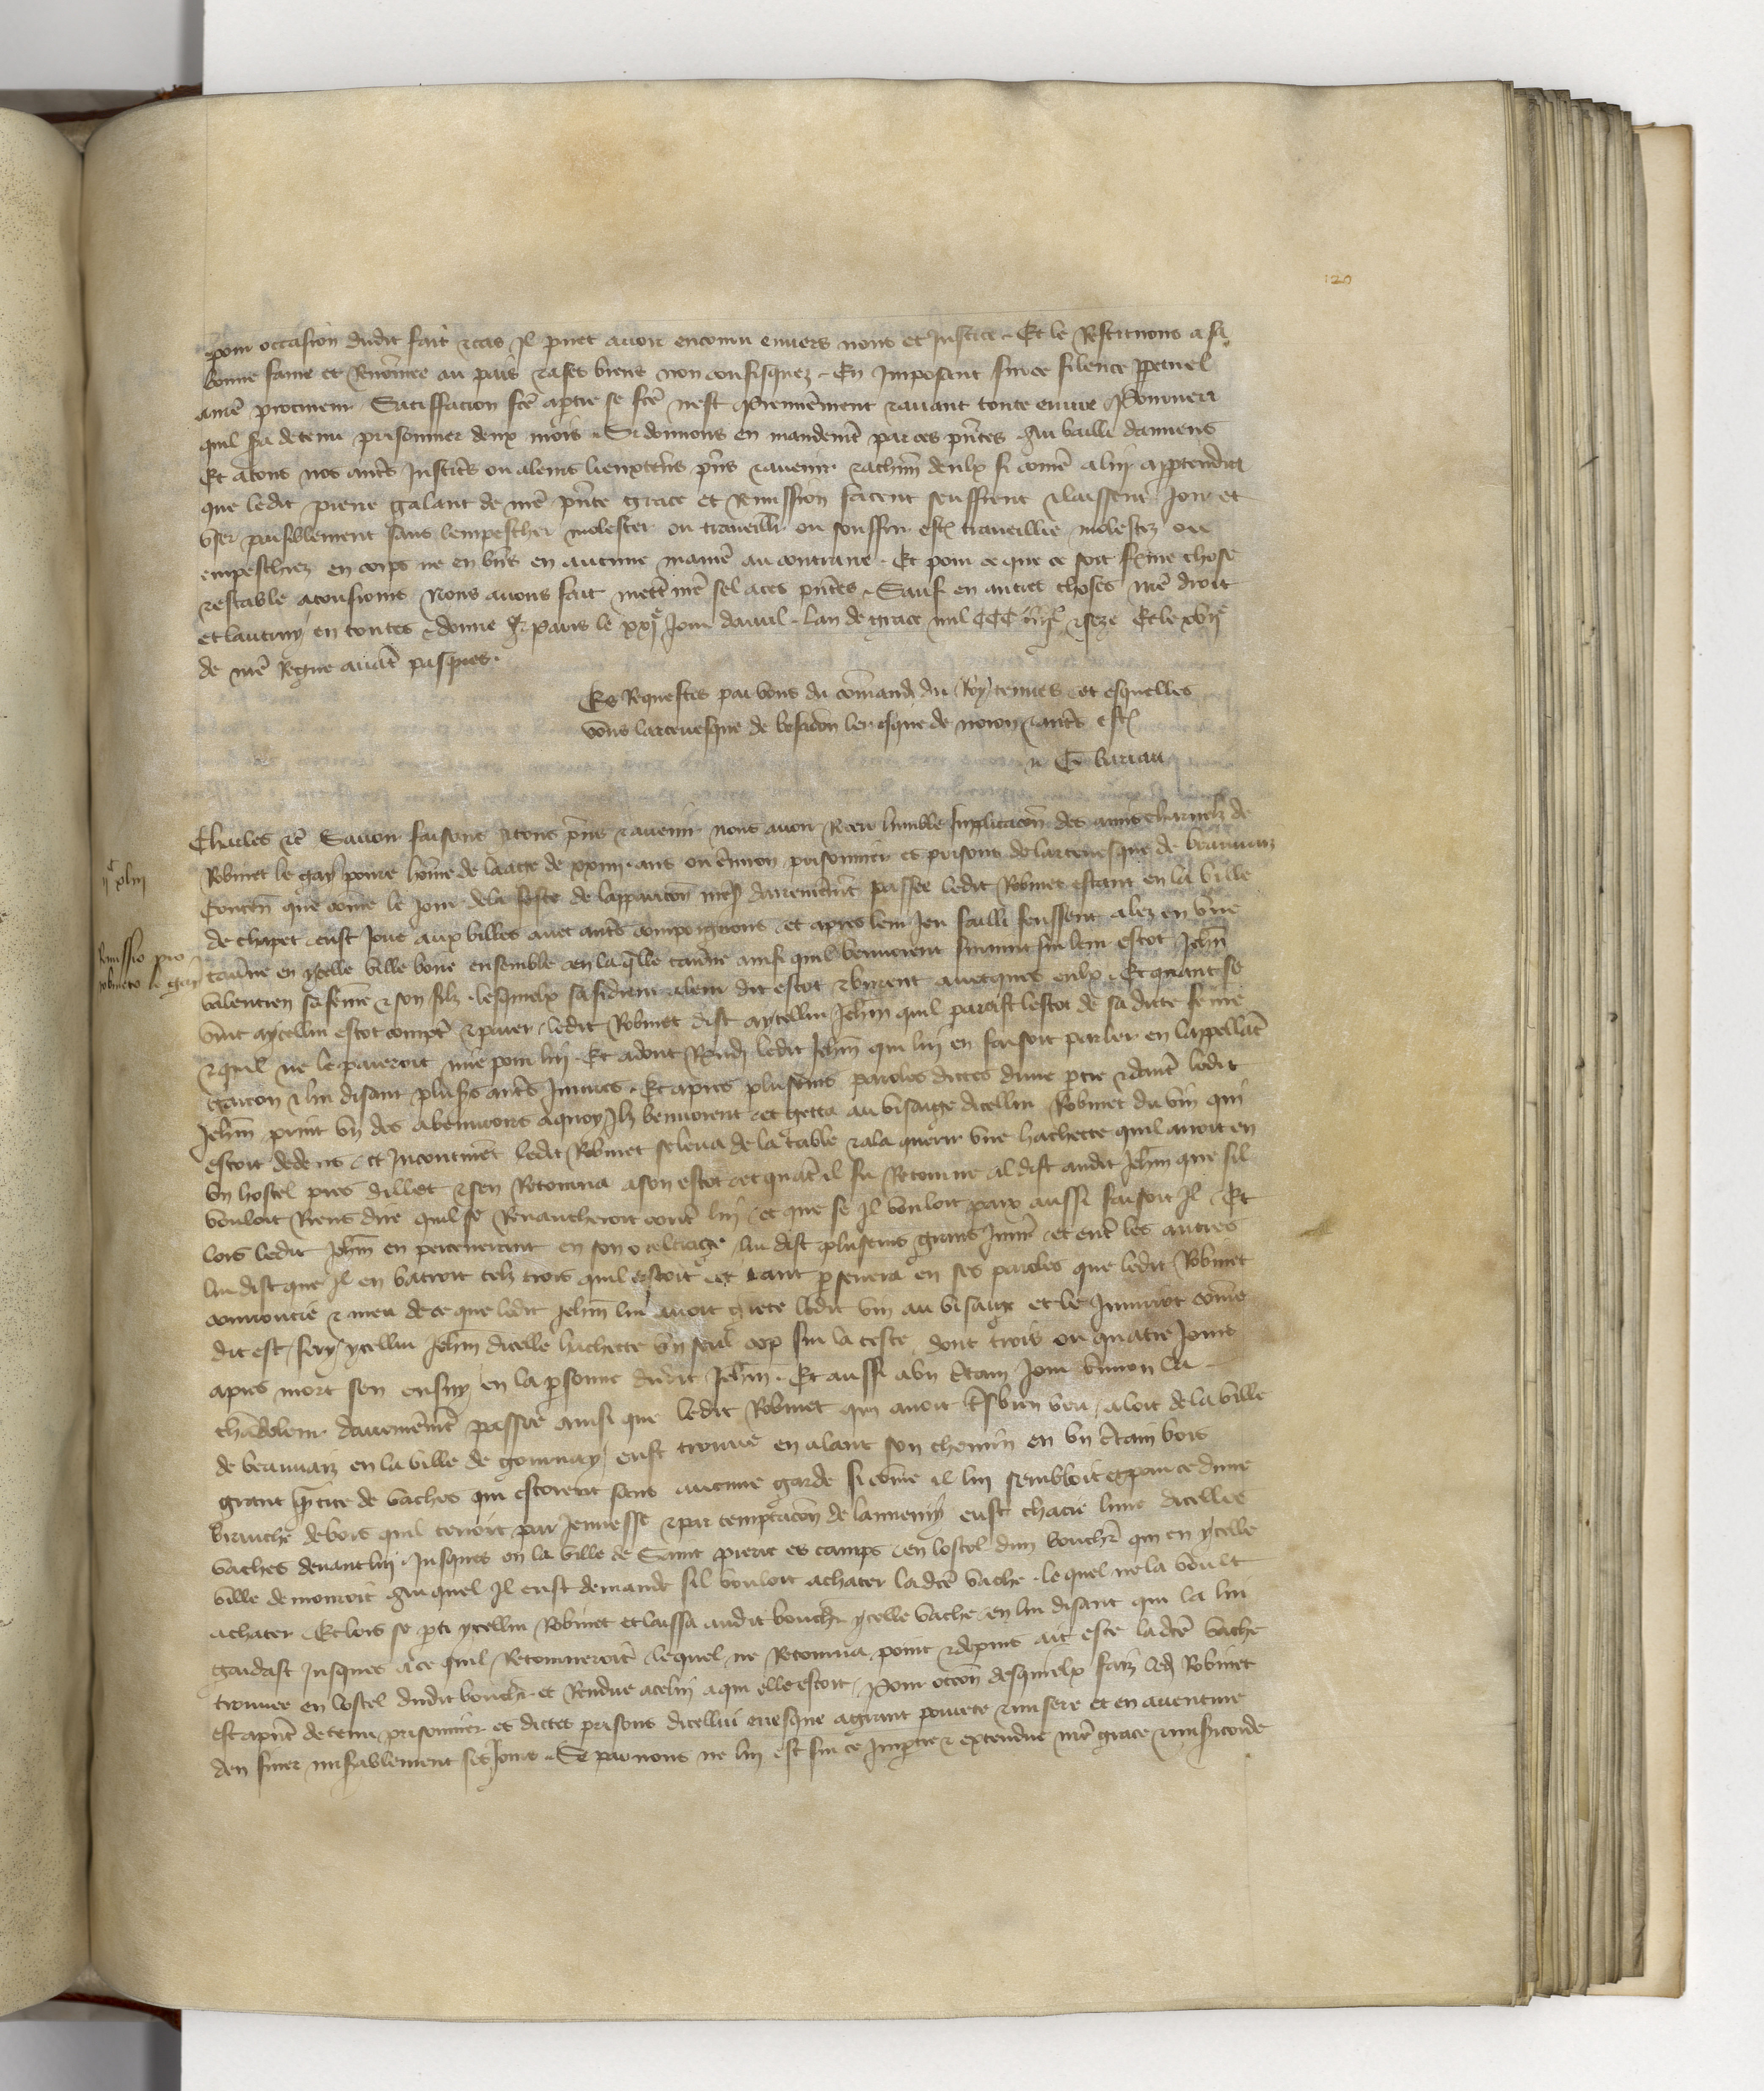 120
pour occasion dudit fait et cas Il puet avoir encouru envers nous et Justice. Et le Restituons a sa
bonne fame et Renommee au pais et a ses biens non confisquez. En Imposant sur ce silence perpetuel
a nostre procureur Satisfacion fcē a partie se fcē nest premierement et avant toute euvre Pourveu
quil sera detenu prisonnier deux mois. Si donnons en mandement par ces presentes Au bailli damiens
Et a tous nos autres Justiciers ou a leurs lieuxtenans presens et avenir et a chacun deulx si comme a luy appartendra
que ledit pierre galant de nostre presente grace et Remission facent seuffrent et laissent Joir et
user paisiblement sans lempescher molester ou traveillier ou souffrir estre traveillie molestez ou
empeschiez en corps ne en biens en aucune maniere au contraire. Et pour ce que ce soit ferme chose
et estable a tousjours Nous avons fait mettre nostre seel a ces presentes. Sauf en autres choses nostre droit
et lautruy en toutes. donne a Paris le xxje Jour davril. Lan de grace mil CCC iiijxx et seze Et le xvije
de nostre Regne avant pasques.
Es Requestes par vous du comandement du Roy tenues et esquelles
vous larcevesque de besancon levesque de noion et autres estiez
G. barrau
ijc xliij
Remissio pro
robineto le gay
Charles etc Savoir faisons a tous presens et avenir nous avoir Receu humble supplicacion des amis charnelz de
Robinet le gay povre homme de laage de xxiiij ans ou environ prisonnier es prisons de levesque de beauvaiz
Contenant que comme le Jour de la feste de lapparicion nostre seigneur darrenierement passee ledit Robinet estant en la ville
de chapet eust Joue aux billes avec autres compaignons et apres leur Jeu failli feussent alez en une
taverne en ycelle ville boire ensemble et en laquelle taverne ainsi quil bevoient survint sur leur escot Jehan
valentien sa femme et son filz. lesquelx sasidrent a leur dit escot et burent avecques eulx. Et quant se
vint a ycellui escot compter et paier ledit Robinet dist a ycellui Jehan quil paiast lescot de sa dicte femme
et quil ne le paieroit mie pour lui. Et adont Respondi ledit Jehan qui lui en faisoit parler en lappellant
garcon et lui disant plusieurs autres Injures. Et apres plusieurs paroles dictes dune partie et dautre ledit
Jehan print un des abeuvroirs a quoy Ilz bevoient et getta au visaige dicellui Robinet du vin qui
estoit dedens et Incontinent ledit Robinet se leva de la table et ala querir une hachette quil avoit en
un hostel pres dillec et sen Retourna a son escot et quant il fu Retourne Il dist audit Jehan que sil
vouloit Riens dire quil se Revancheroit contre lui et que se Il vouloit paix aussi faisoit Il. Et
lors ledit Jehan en perseverant en son oultrage lui dist plusieurs grans Injures et entre les autres
lui dist que Il en batroit telz trois quil estoit et tant persevera en ses paroles que ledit Robinet
courroucie et meu de ce que ledit Jehan lui avoit gecte ledit vin au visaige et le Injurioit comme
dit est, fery ycellui Jehan dicelle hachette un seul cop sur la teste dont trois ou quatre Jours
apres mort sen ensuy en la personne dudit Jehan. Et aussi a un certain Jour environ la
chandeleur darrenierement passee ainsi que ledit Robinet qui avoit tresbien beu aloit de la ville
de beauvaiz en la ville de gournay eust trouve en alant son chemin en un certain bois
grant quantite de vaches qui estoient sans aucune garde si comme il lui sembloit et pour ce dune
branche de bois quil tenoit par Jeunesse et par temptacion de lannemy eust chacie lune dicelles
vaches devant lui Jusques en la ville de Saint pierre es camps et en lostel dun bouchier qui en ycelle
ville demouroit Auquel Il eust demande sil vouloit achater la dicte vache. lequel ne la voult
achater. Et lors se parti ycellui Robinet et laissa audit bouchier ycelle vache en lui disant qui la lui
gardast Jusques a ce quil Retourneroit lequel ne Retourna point et depuis ait este la dicte vache
trouvee en lostel dudit bouchier et Rendue a celui a qui elle estoit. Pour occasion desquielx faiz ledit Robinet
est a present detenu prisonnier es dictes prisons dicellui evesque a grant povrete et misere et en aventure
den finer miserablement ses Jours. Se par nous ne lui est sur ce Impartie et extendue nostre grace et misericorde